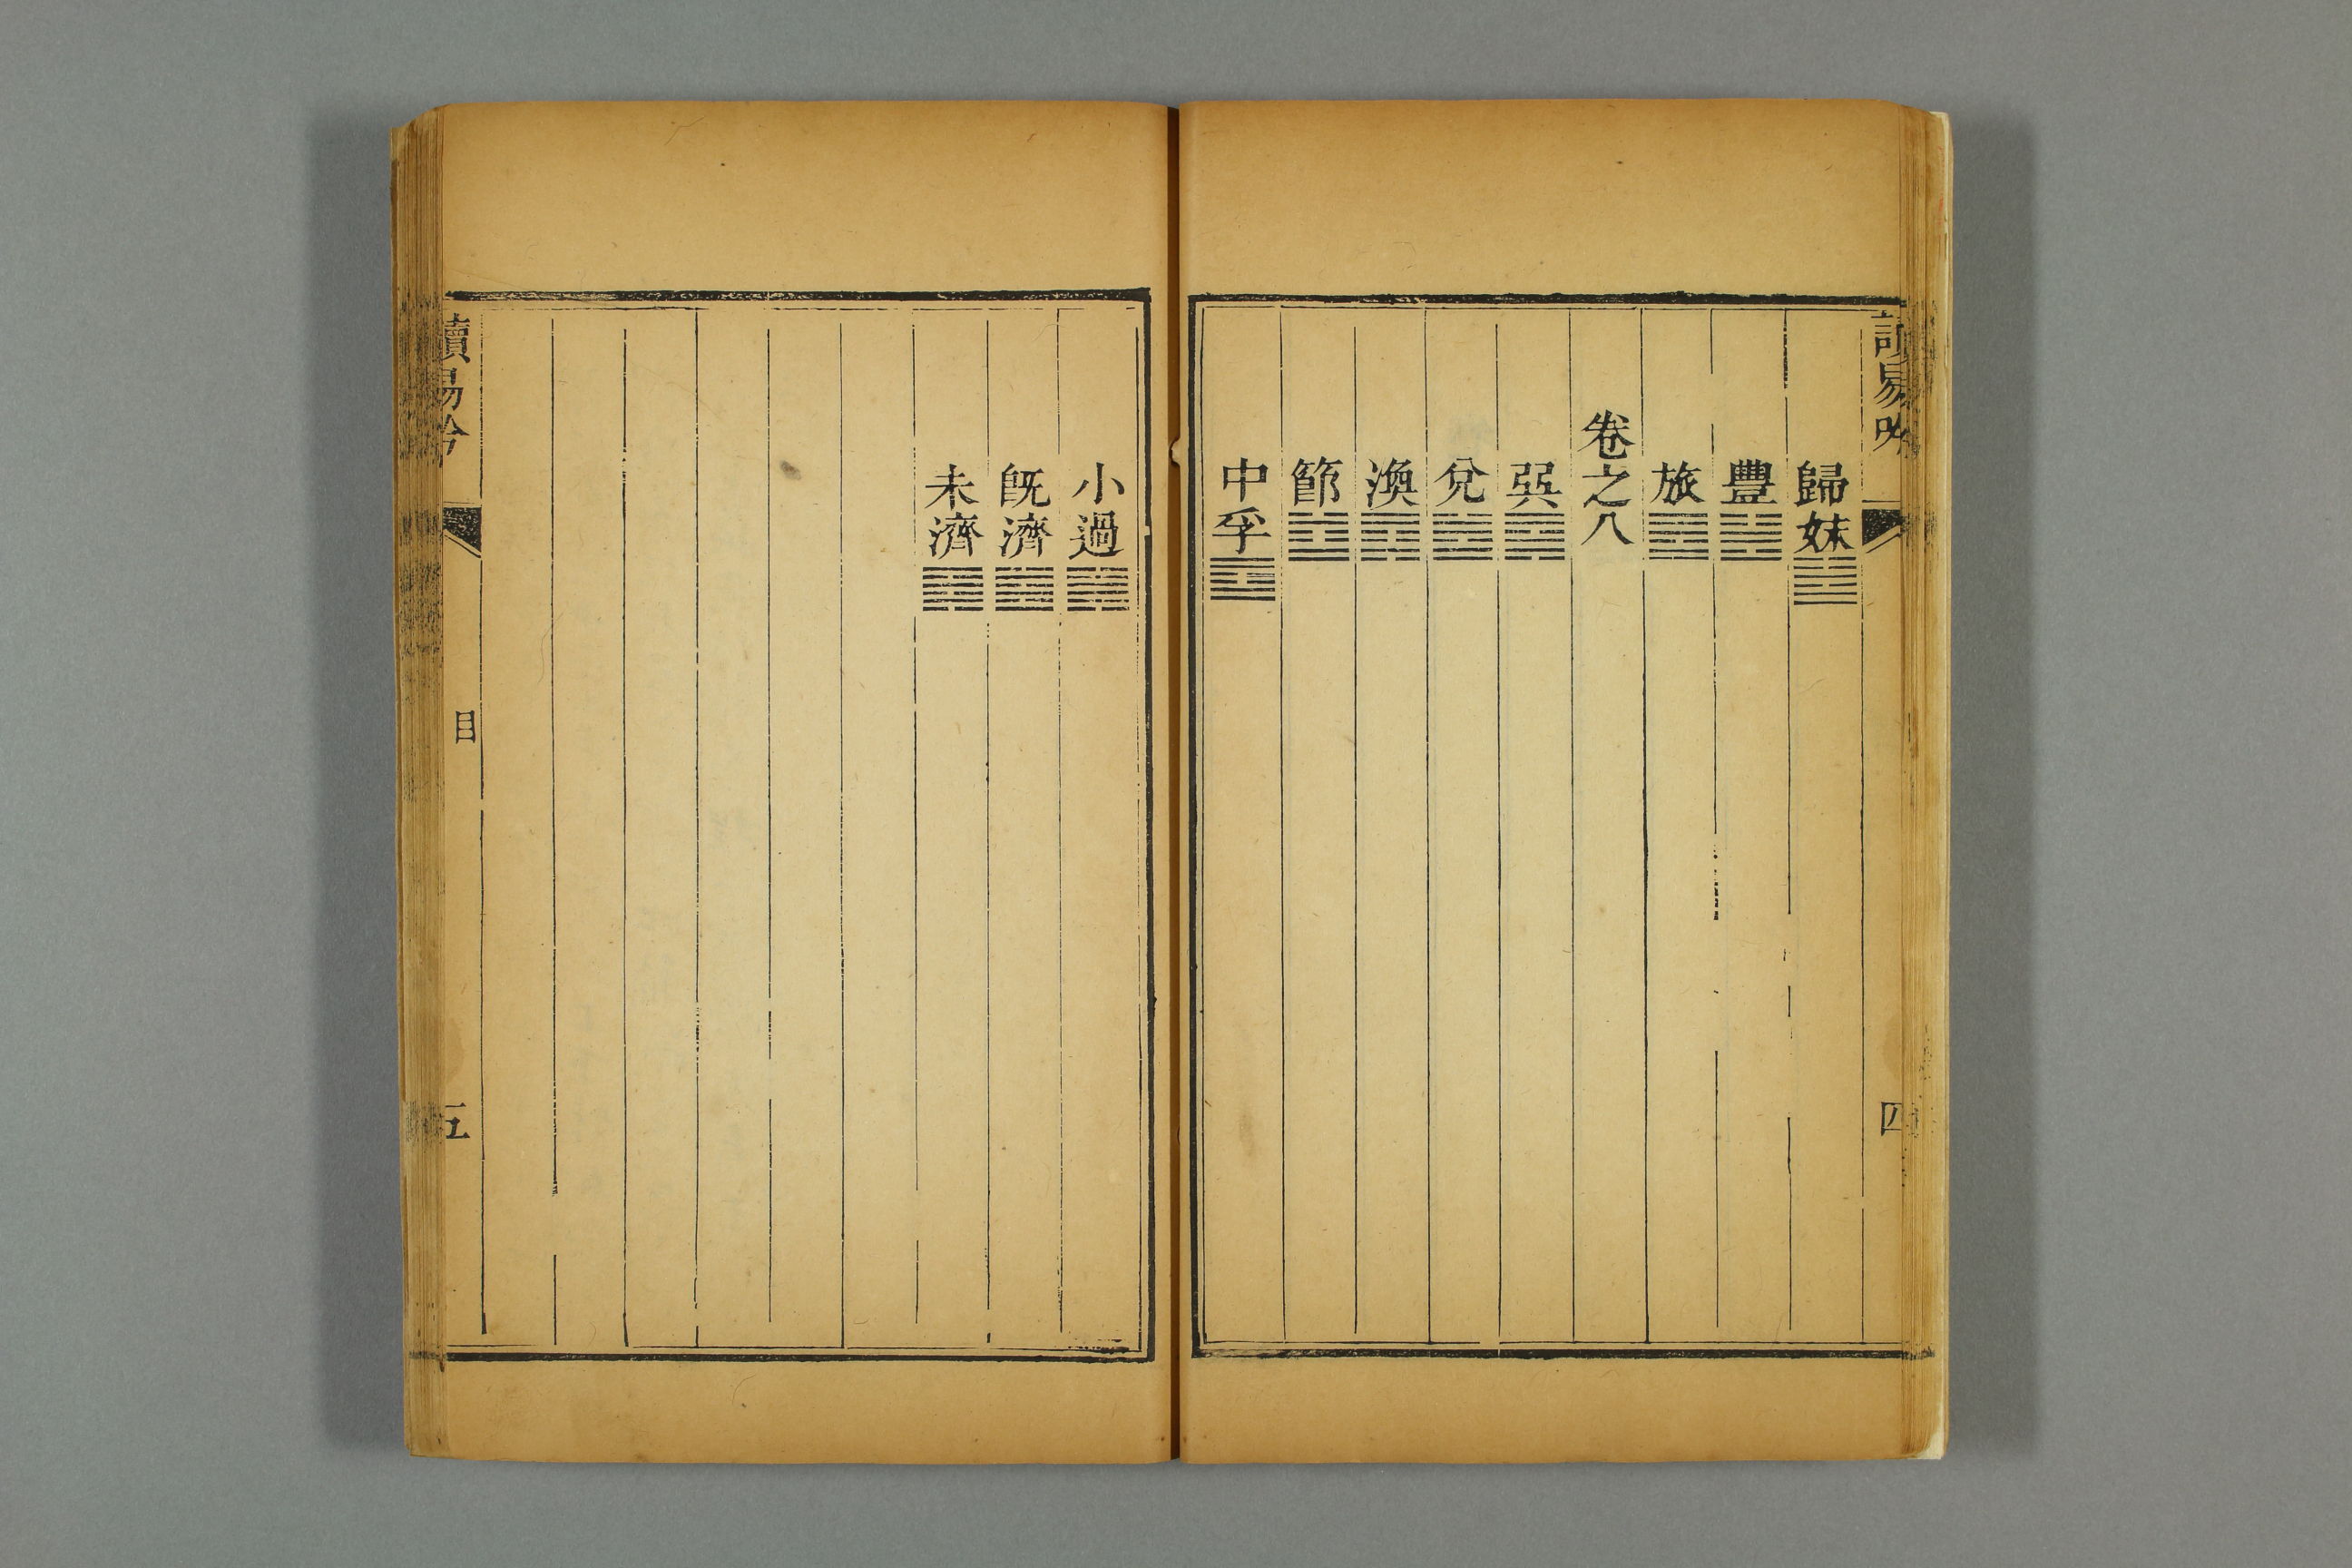 讀易吟
四
歸妹䷵
豐䷶
旅䷷
卷之八
巽䷸
兌䷹
渙䷺
節䷻
中孚䷼
小過䷽
旣濟䷾
未濟䷿
讀易吟
目
五